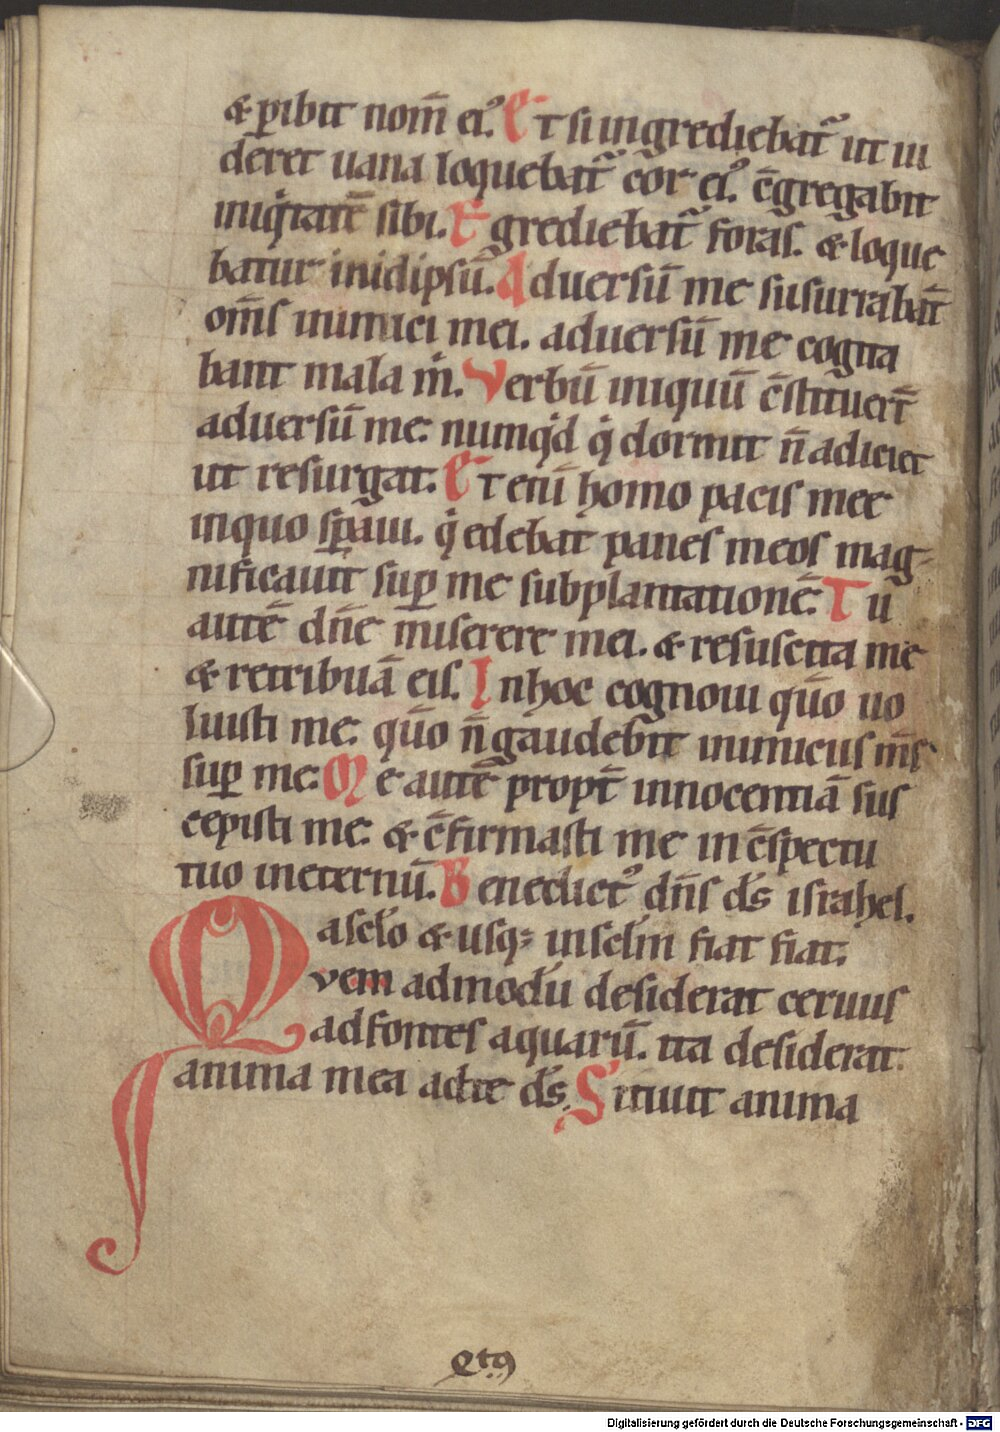 & ꝑibit nom̄ ei᾿. Et si ingrediebat᷑ ut ui
deret uana loquebat᷑ cor ei᾿. c̄gregabit
iniq̇tatē sibi. Egrediebat᷑ foras. & loque
batur inidipsū. Aduersū me susurrabāt
om̄s inimici mei. aduersū me cogita
bant mala ṁ. Verbū iniquū c̄stituert̄
aduersū me. numq̇d q̇ dormit n̄ adiciet
ut resurgat. Et eni̅ homo pacis mee
inquo sꝑaui. q̇ edebat panes meos mag-
nificauit suꝑ me subplantationē. Tu
autē dn̄e miserere mei. & resuscita me
& retribuā eis. Inhoc cognoui qūo uo
luisti me. qūo n̄ gaudebit inimicus m̄s
suꝑ me. Me autē propt̄ innocentiā sus
cepisti me. & c̄firmasti me in c̄spectu
tuo ineternū. Benedict᾿ dn̄s ds̄ israhel.
asclo & usq; insclm fiat fiat.
Qvem admodū desiderat ceruus
adfontes aquarū. ita desiderat
anima mea adte ds̄. Sitiuit anima
Digitalisierung gefördert durch die Deutsche Forschungsgemeinschaft - DFG